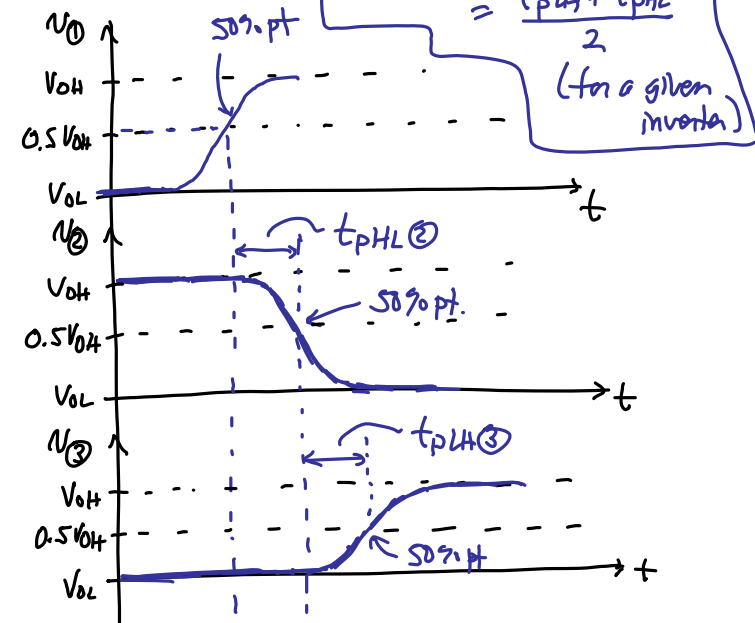 = tpLH + tpHL
2
(for a given
inverter)
V①
50% pt
VOH
0.5VOH
VOL
t
V②
tpHL②
VOH
50% pt.
0.5VOH
VOL
t
V③
tpLH③
VOH
0.5VOH
50% pt
VOL
t